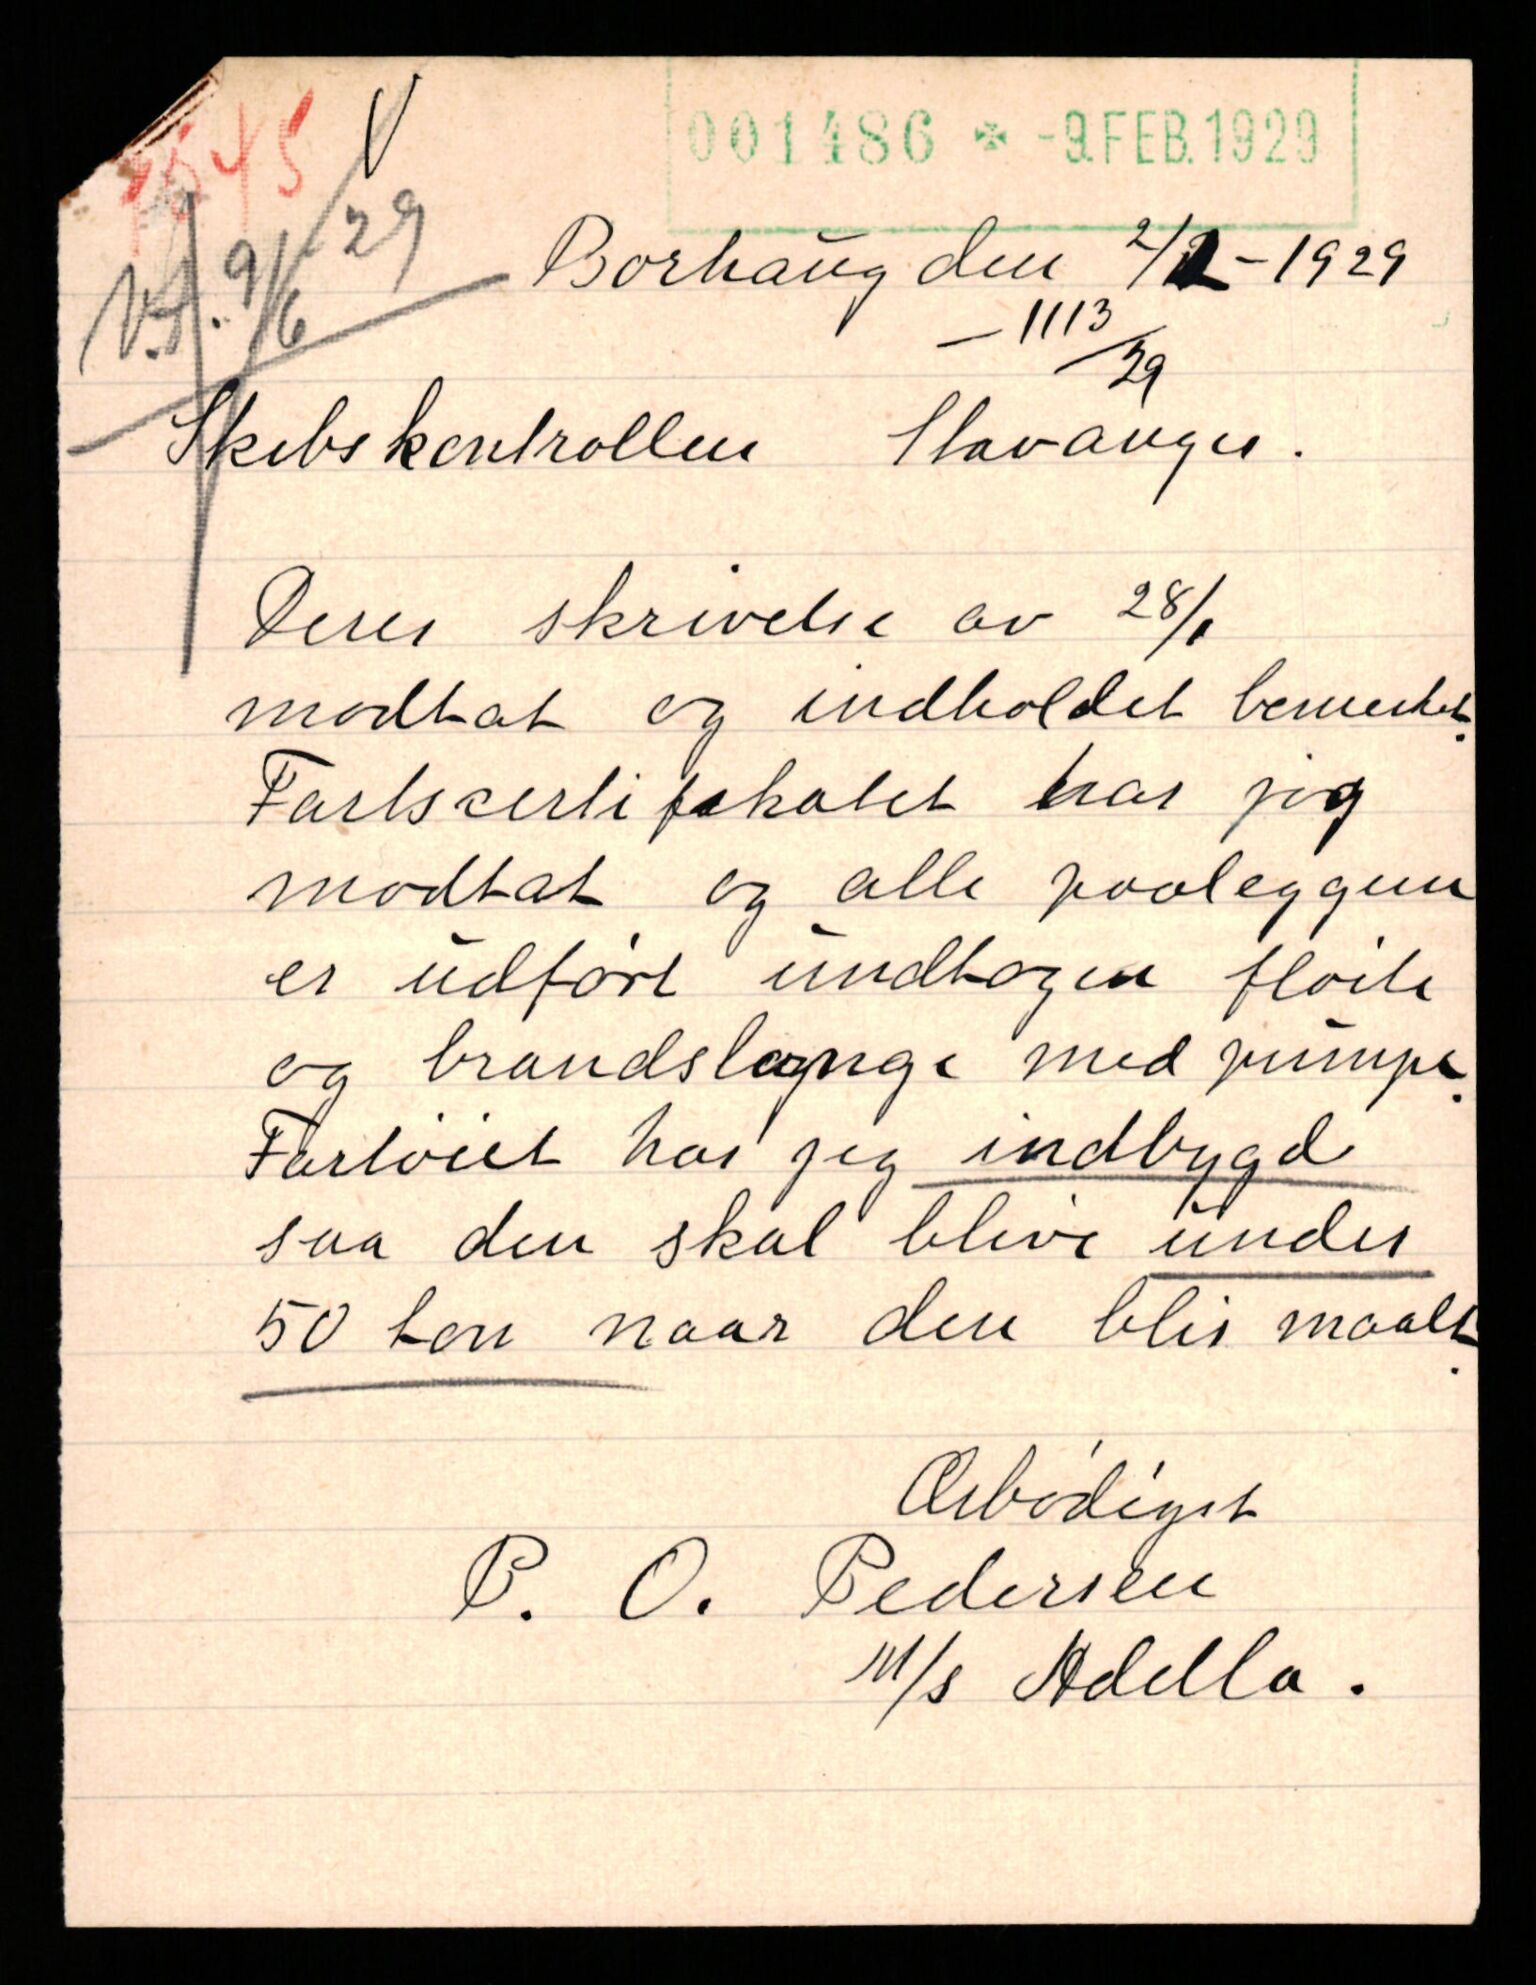 001486 * -9.FEB.1929
V
29
9/6
Borhaug den 2/2-1929
- 1113/29
Skibskontrollen Stavanger.
Deres skrivelse av 28/1
modtat og indholdet bemerket.
Fartscertifikatet har jeg
modtat og alle paaleggene
er udført undtagen fløite
og brandslange med pumpe.
Fartøiet har jeg indbygd
saa den skal blive under
50 ton naar den blir maalt.
Ærbødigst
P. O. Pedersen
M/s Adella.